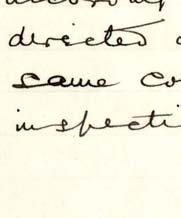 directed
same co
inspecti